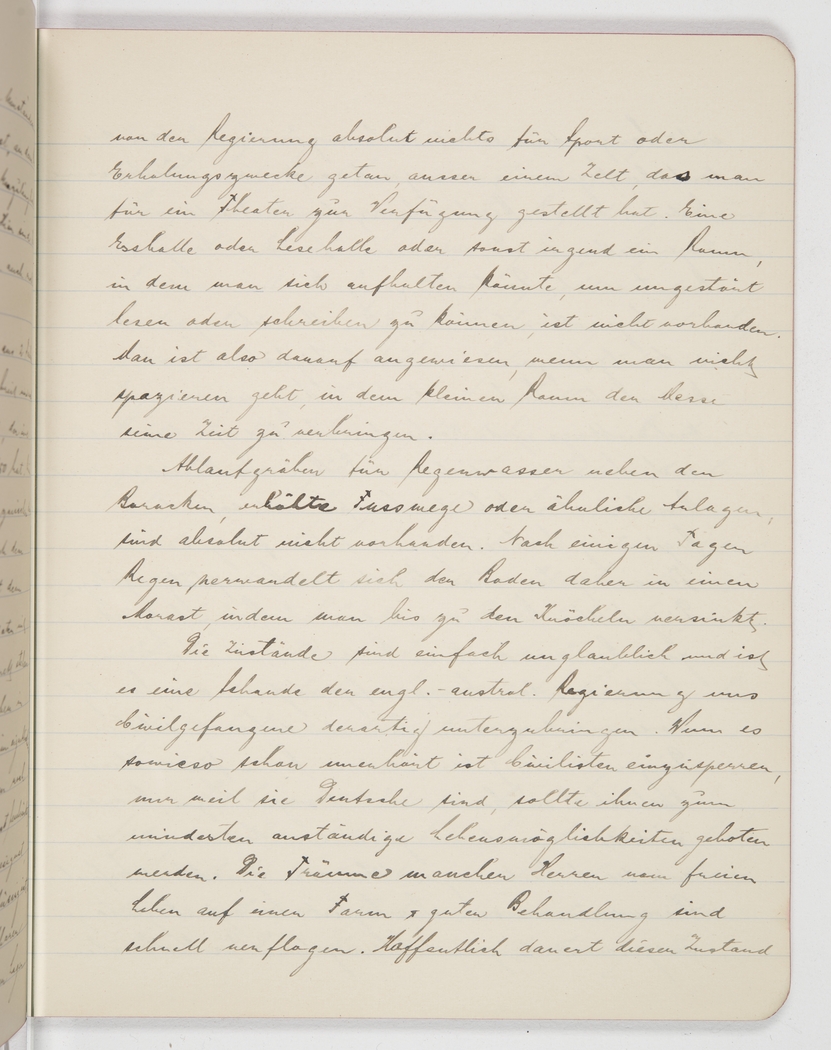 von der Regierung absolut nichts für Sport oder
Erholungszwecke getan, ausser einem Zelt, das man
für ein Theater zur Verfügung gestellt hat. Eine
Esshalle oder Lesehalle oder sonst irgend ein Raum,
in dem man sich aufhalten könnte, um ungestört
lesen oder schreiben zu können, ist nicht vorhanden.
Man ist also darauf angewiesen, wenn man nicht
spazieren geht, in dem kleinen Raum der Messe
seine Zeit zu verbringen.
Ablaufgräben für Regenwasser neben den
Baracken, erhöhte Fusswege oder ähnliche Anlagen,
sind absolut nicht vorhanden. Nach einigen Tagen
Regen verwandelt sich der Boden daher in einen
Morast, indem man bis zu den Knöcheln versinkt.
Die Zustände sind einfach unglaublich und ist
es eine Schande der engl.-austral. Regierung uns
Civilgefangene derartig unterzubringen. Wenn es
sowieso schon unerhört ist Civilisten einzusperren,
nur weil sie Deutsche sind, sollte ihnen zum
mindesten anständige Lebensmöglichkeiten geboten
werden. Die Träume mancher Herren vom freien
Leben auf einer Farm & guten Behandlung sind
schnell verflogen. Hoffentlich dauert dieser Zustand